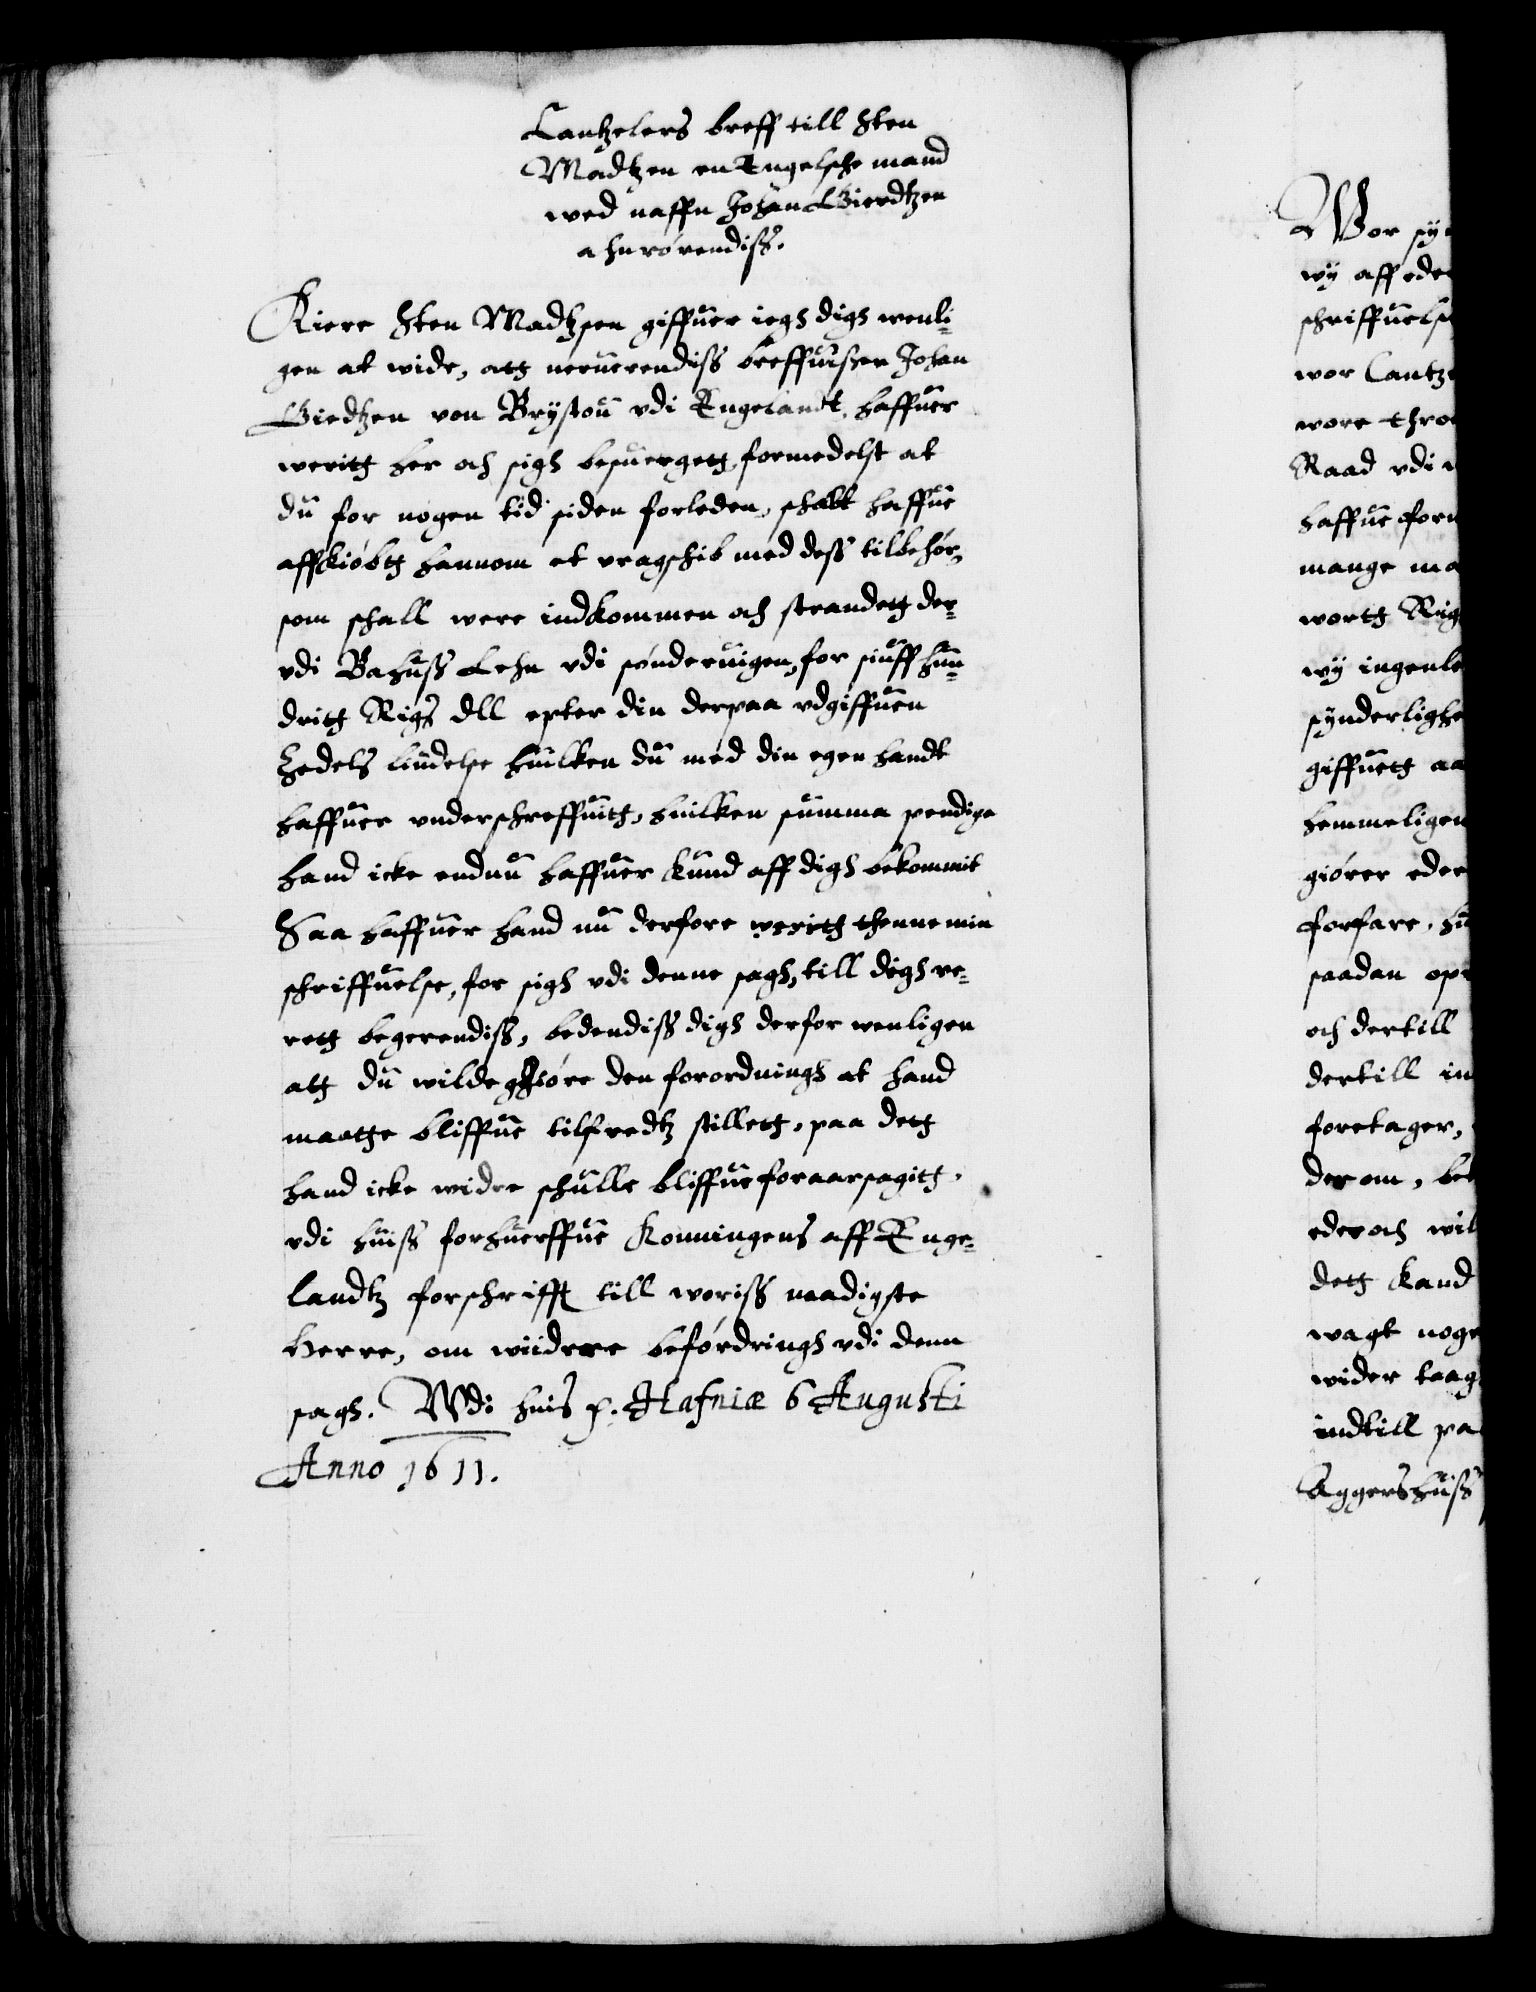 Cantzelers breff till Sten
Madtzen en Engelsche mand
wed naffn Johan Gierdtzen
ahnrörendiss.
Kiere Sten Madtzsen giffuer iegh digh wenli-
gen at wide, att neruerendiss breffuisser Johan
Giedtzen von Brystou vdi Engelandt, haffuer
weritt her och sigh besuergett formedelst at
du for nogen tid siden forleden, schalt haffue
affkiöbtt hannom et vragschib med dess tilbehör,
som schall were indkommen och strandett der-
vdi Bahuss Lehn vdi sönderuigen, for siuff hun-
dritt Rigs dll epter din derpaa vdgiffuen
Zedels liudelse huilken du med din egen handt
haffuer vnderschreffuitt, huilken summa pendige
hand icke endnu haffuer kund aff digh bekommit
Saa haffuer hand nu derfore weritt thenne min
schriffuelse, for sigh vdi denne sagh, till digh ve-
rett begerendiss, bedendiss digh derfor wenligen
att du wilde giöre den forordningh at hand
maatte bliffue tilfredtz stillett, paa dett
hand icke widre schulle bliffue foraarsagitt,
vdi huiss forhuerffue Konningens aff Enge-
landtz forschrifft till woriss naadigste
Herre, om wiidrere befordringh vdi denn
sagh. Wdi huis p. Hafniæ 6 Augusti
Anno 1611.
Wor
wy aff eder
schriffuelse
wor Cantze
wore thro
Raad vdi
haffue forn
mange ma
wortt Rig
wy ingenle
synderlighe
giffuett aa
hemmeligen
giörer eder
forfare, hu
saadan op
och dertill
dertill in
foretager,
der om, be
eder och wil
dett kand
wagt noge
wider taag
indtill pa
Aggershuss